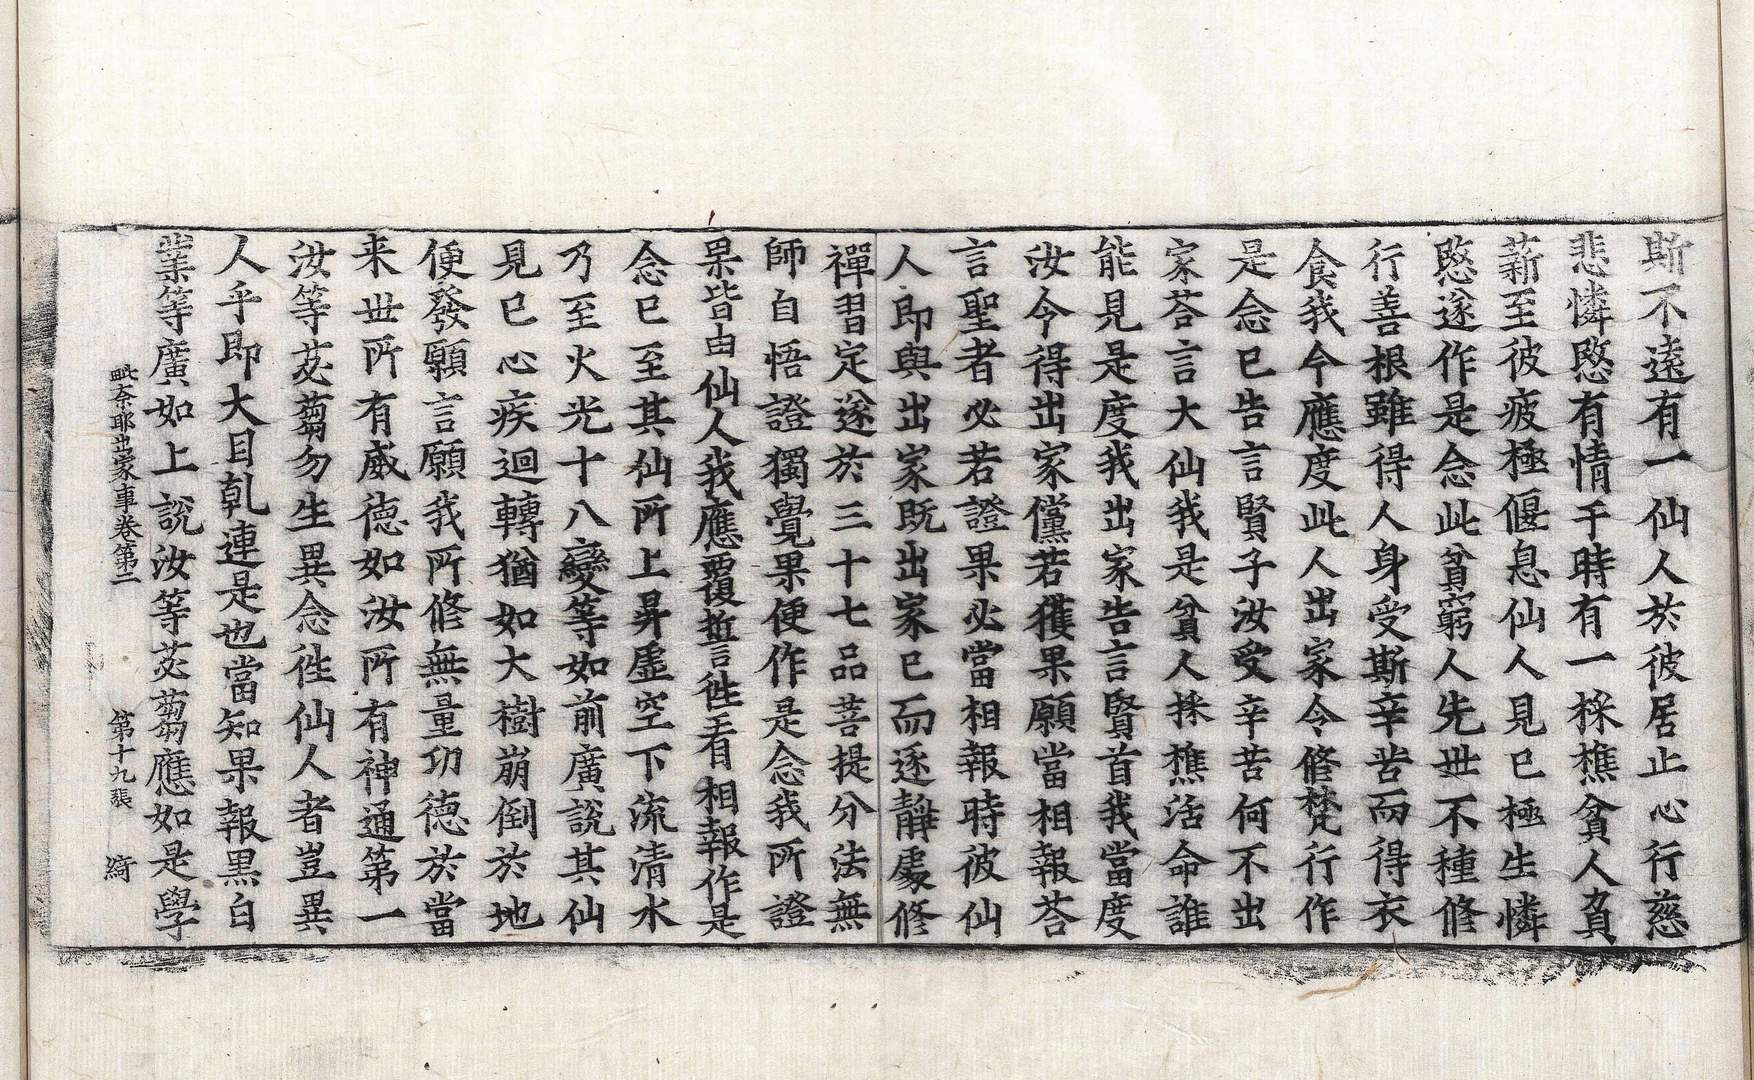 斯不遠有一仙人於彼居止心行慈
悲憐愍有情于時有一採樵貧人負
薪至彼疲極偃息仙人見已極生憐
愍遂作是念此貧窮人先世不種修
行善根雖得人身受斯辛苦而得衣
食我今應度此人出家令修梵行作
是念已告言賢子汝受辛苦何不出
家荅言大仙我是貧人採樵活命誰
能見是度我出家告言賢首我當度
汝今得出家儻若獲果願當相報荅
言聖者必若證果必當相報時彼仙
人即與出家既出家已而逐靜處修
禪習定遂於三十七品菩提分法無
師自悟證獨覺果便作是念我所證
果皆由仙人我應覆踅言徃看相報作是
念已至其仙所上昇虛空下流清水
乃至火光十八變等如前廣說其仙
見已心疾迴轉猶如大樹崩倒於地
便發願言願我所修無量功德於當
来世所有威德如汝所有神通第一
汝等苾蒭勿生異念徃仙人者豈異
人乎即大目乹連是也當知果報黑白
業等廣如上說汝等苾蒭應如是學
毗奈耶出家事卷第二 第十九張 綺